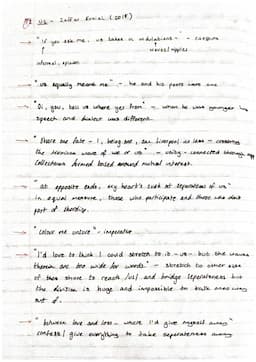 Us - Zaffar Kunial (2018)
→ "If you ask me, us takes in undulations" - caesura
waves/ripples
informal, opinion
→ "us equally meant me" - he and his peers were one
→ "Oi, you, tell us where yer from" - when he was younger
speech and dialect was different
→ "Share one fate - I, being one, Liverpool no less -
the of we or us" - unity - connected through
collections formed based around mutual interest.
→ "at opposite ends, my heart's sunk at separations of us"
in equal measure, those who participate and those who don't
part of
→ "colour me mature" - imperative
→ "I'd love to think I could stretch to it - us - but the waves
therein are too wide for words" - stretch to other side
of the shore to reach /us/ and bridge separateness but
the division is huge and impossible to
out of.
→ "between love and loss - where I'd give myself away"
/ give everything to make separateness away